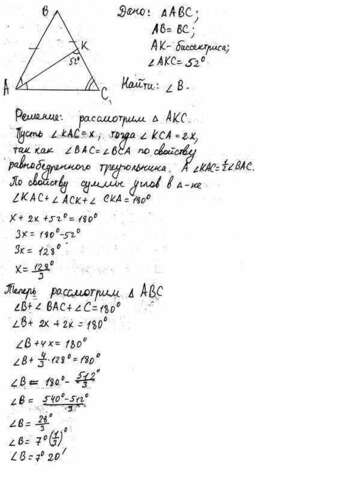 B
Дано: △ABC;
AB = BC;
AK - биссектриса;
∠AKC = 52°
K
52°
A
C
Найти: ∠B.
Решение: рассмотрим △ AKC.
Пусть ∠KAC = x, тогда ∠KCA = 2x,
так как ∠BAC = ∠BCA по свойству
равнобедренного треугольника. А ∠KAC = ½∠BAC.
По свойству суммы углов в △-ке
∠KAC + ∠ACK + ∠CKA = 180°
x + 2x + 52° = 180°
3x = 180° - 52°
3x = 128°
x = 128°/3
Теперь рассмотрим △ ABC
∠B + ∠BAC + ∠C = 180°
∠B + 2x + 2x = 180°
∠B + 4x = 180°
∠B + 4/3 · 128° = 180°
∠B = 180° - 512°/3
∠B = 540° - 512°/3
∠B = 28°/3
∠B = 7° (1/3)°
∠B = 7° 20'